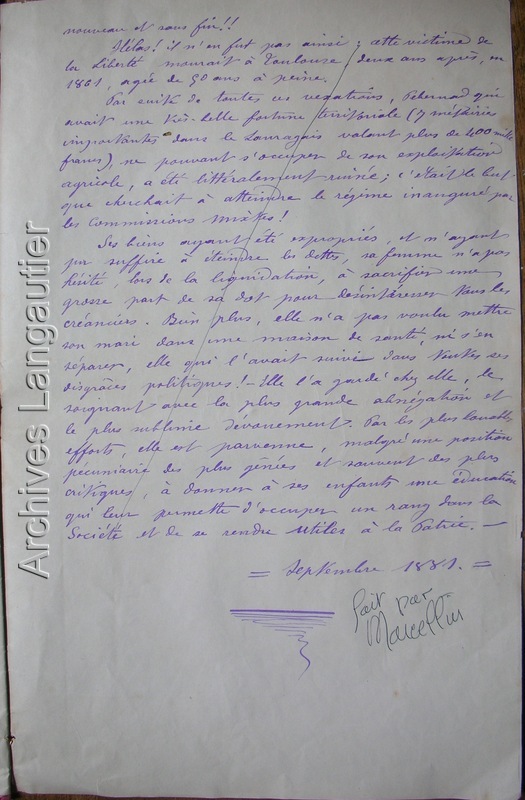 nouveau et sans fin!!
Hélas! il n'en fut pas ainsi; cette victime de
la Liberté mourait à Toulouse deux ans après, en
1861, agée de 50 ans à peine.
Par suite de toutes ces vexations, Pebernad qui
avait une très-belle fortune territoriale (7 métairies
importantes dans le Lauragais valant plus de 400 mille
francs), ne pouvant s'occuper de son exploitation
agricole, a été littéralement ruiné; c'était le but
que cherchait à atteindre le régime inauguré par
les Commissions mixtes!
Ses biens ayant été expropriés, et n'ayant
pu suffire à éteindre les dettes, sa femme n'a pas
hésité, lors de la liquidation, à sacrifier une
grosse part de sa dot pour désintéresser tous les
créanciers. Bien plus, elle n'a pas voulu mettre
son mari dans une maison de santé, ni s'en
séparer, elle qui l'avait suivi dans toutes ses
disgrâces politiques! - Elle l'a gardé chez elle, le
soignant avec la plus grande abnégation et
le plus sublime dévouement. Par les plus louables
efforts, elle est parvenue, malgré une position
pécuniaire des plus gênées et souvent des plus
critiques, à donner à ses enfants une éducation
qui leur permette d'occuper un rang dans la
Société et de se rendre utiles à la Patrie. —
= Septembre 1881. =
fait par
Marcellin
Archives Langautier